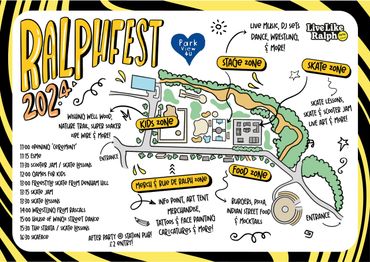 RALPHFEST
2024
Park
View
4U
LIVE MUSIC, DJ SETS
DANCE, WRESTLING,
& MORE!
LiveLike
Ralph
STAGE ZONE
SKATE ZONE
WISHING WELL WOOD,
NATURE TRAIL, SUPER SOAKER
& MORE!
KIDS ZONE
SKATE LESSONS,
SKATE & SCOOTER JAM
LIVE ART & MORE!
11:00 OPENING 'CEREMONY'
11:15 ESMO
11:30 SCOOTER JAM / SKATE LESSONS
12:00 GAMES FOR KIDS
13:00 FREESTYLE SKATE FROM DENHAM HILL
13:15 SKATE JAM
13:30 SKATE LESSONS
14:00 WRESTLING FROM RASCALS
15:00 HOUSE OF WINGZ STREET DANCE
15:30 THE STRATA / SKATE LESSONS
16:30 SKAFECO
ENTRANCE
MERCH & RUE DE RALPH ZONE
FOOD ZONE
INFO POINT, ART TENT
MERCHANDISE,
TATTOOS & FACE PAINTING
CARICATURES & MORE!
BURGERS, PIZZA,
INDIAN STREET FOOD
& MOCKTAILS
ENTRANCE
AFTER PARTY @ STATION PUB!
£2 ENTRY!